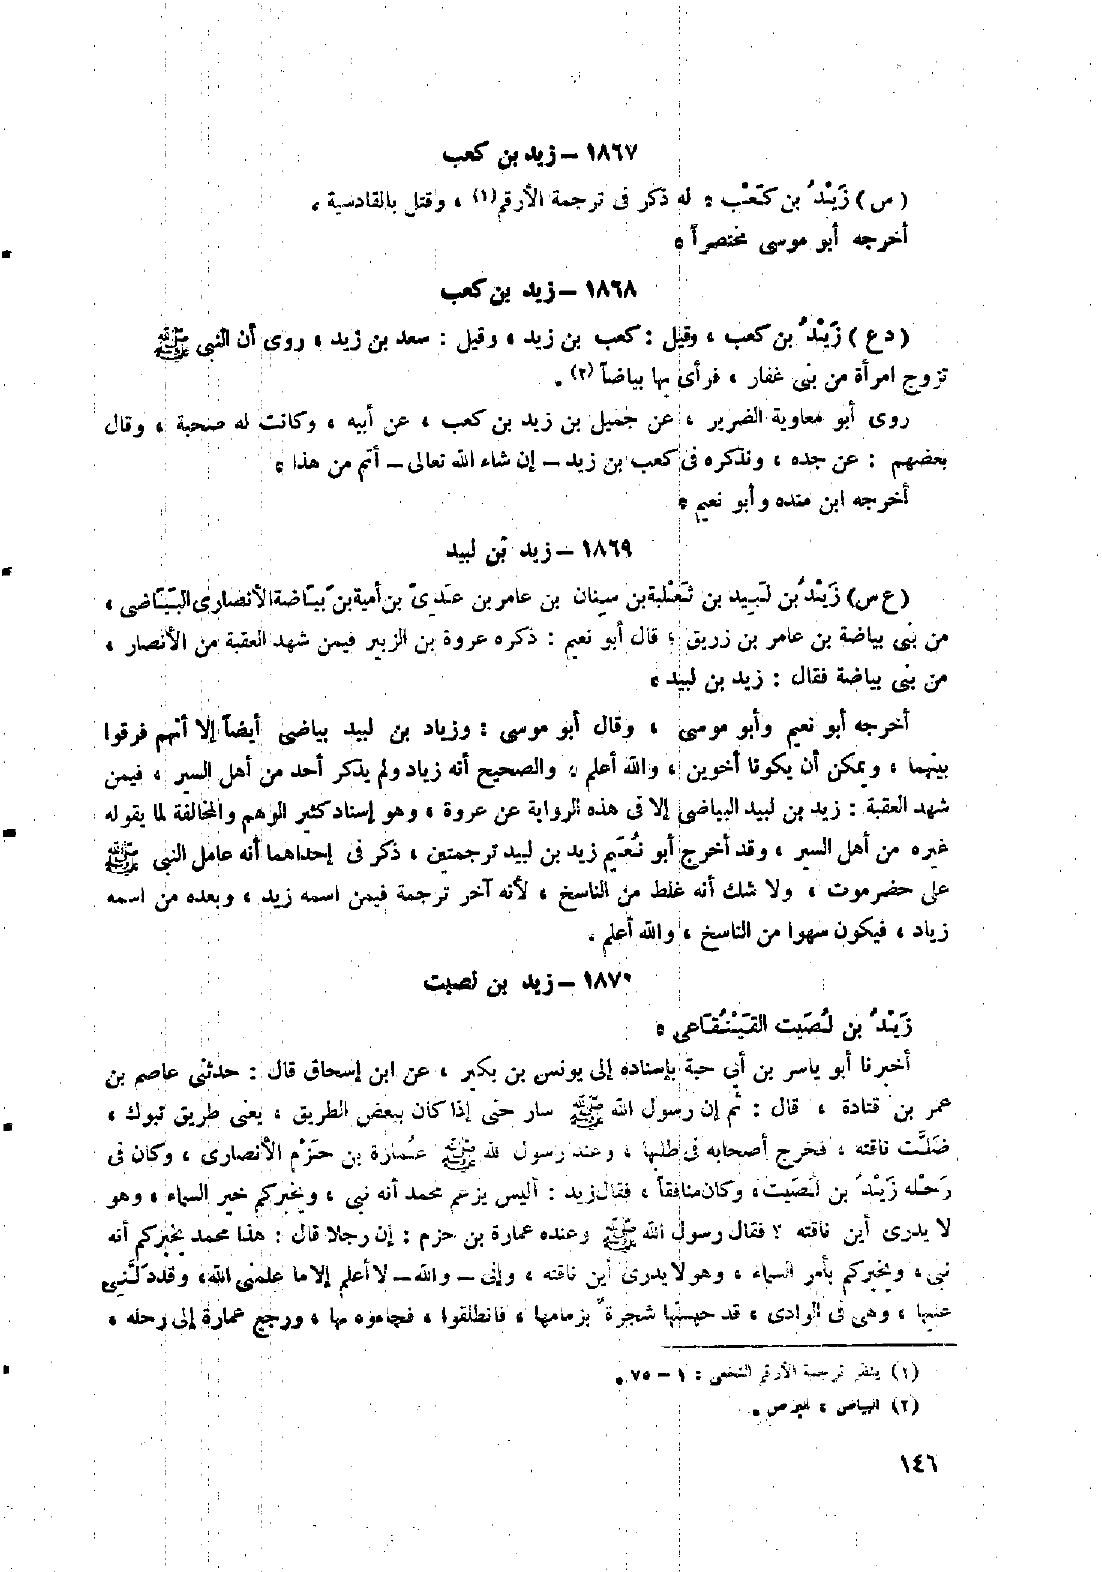 ١٨٦٧ – زيد بن كعب
(س) زَيْدُ بن كَعْب ، له ذكر فى ترجمة الأرقم(١) ، وقتل بالقادسية .
أخرجه أبو موسى مختصراً .
١٨٦٨ – زيد بن كعب
(دع) زَيْدُ بن كعب ، وقيل : كعب بن زيد ، وقيل : سعد بن زيد ، روى أن النبى ﷺ
تزوج امرأة من بنى غفار ، فرأى بها بياضاً (٢) .
روى أبو معاوية الضرير ، عن جميل بن زيد بن كعب ، عن أبيه ، وكانت له صحبة ، وقال
بعضهم : عن جده ، ونذكره فى كعب بن زيد – إن شاء الله تعالى – أتم من هذا .
أخرجه ابن منده وأبو نعيم .
١٨٦٩ – زيد بن لبيد
(ع س) زَيْدُ بن لَبِيد بن ثَعْلبة بن سِنان بن عامر بن عَدِىّ بن أمية بن بَيَاضة الأنصارى البَيَاضى ،
من بنى بياضة بن عامر بن زريق ؛ قال أبو نعيم : ذكره عروة بن الزبير فيمن شهد العقبة من الأنصار ،
من بنى بياضة فقال : زيد بن لبيد .
أخرجه أبو نعيم وأبو موسى ، وقال أبو موسى : وزياد بن لبيد بياضى أيضاً إلا أنهم فرقوا
بينهما ، ويمكن أن يكونا أخوين ، والله أعلم . والصحيح أنه زياد ولم يذكر أحد من أهل السير ، فيمن
شهد العقبة : زيد بن لبيد البياضى إلا فى هذه الرواية عن عروة ، وهو إسناد كثير الوهم والمخالفة لما يقوله
غيره من أهل السير ، وقد أخرج أبو نُعَيم زيد بن لبيد ترجمتين ، ذكر فى إحداهما أنه عامل النبى ﷺ
على حضرموت ، ولا شك أنه غلط من الناسخ ، لأنه آخر ترجمة فيمن اسمه زيد ، وبعده من اسمه
زياد ، فيكون سهوا من الناسخ ، والله أعلم .
١٨٧٠ – زيد بن لصيت
زَيْدُ بن لُصَيت القَيْنُقَاعى .
أخبرنا أبو ياسر بن أبى حبة بإسناده إلى يونس بن بكير ، عن ابن إسحاق قال : حدثنى عاصم بن
عمر بن قتادة ، قال : ثم إن رسول الله ﷺ سار حتى إذا كان ببعض الطريق ، يعنى طريق تبوك ،
ضَلَّت ناقته ، فخرج أصحابه فى طلبها ، وعند رسول لله ﷺ عُمارة بن حَزْم الأنصارى ، وكان فى
رَحْله زَيْدُ بن لُصَيت ، وكان منافقاً ، فقال زيد : أليس يزعم محمد أنه نبى ، ويخبركم خبر السماء ، وهو
لا يدرى أين ناقته ؟ فقال رسول الله ﷺ وعنده عمارة بن حزم : إن رجلا قال : هذا محمد يخبركم أنه
نبى ، ويخبركم بأمر السماء ، وهو لا يدرى أين ناقته ، وإنى – والله – لا أعلم إلا ما علمنى الله ، وقد دَلَّنِى
عليها ، وهى فى الوادى ، قد حبستها شجرةٌ بزمامها ، فانطلقوا ، فجاءوه بها ، ورجع عمارة إلى رحله ،
(١) ينظر ترجمة الأرقم النخعى : ١ – ٧٥ .
(٢) البياض ، البرص .
١٤٦